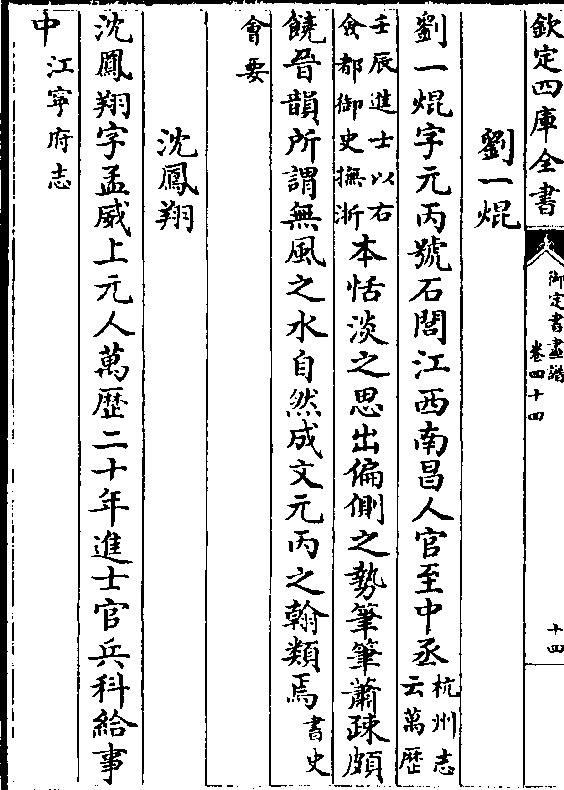 欽定四庫全書
御定書畫譜
卷四十四
十四
劉一焜
劉一焜字元丙號石閭江西南昌人官至中丞杭州志云萬歷
壬辰進士以右僉都御史撫浙本恬淡之思出偏側之勢筆筆蕭疎頗
饒晉韻所謂無風之水自然成文元丙之翰類焉書史
會要
沈鳳翔
沈鳳翔字孟威上元人萬歷二十年進士官兵科給事
中江寧府志